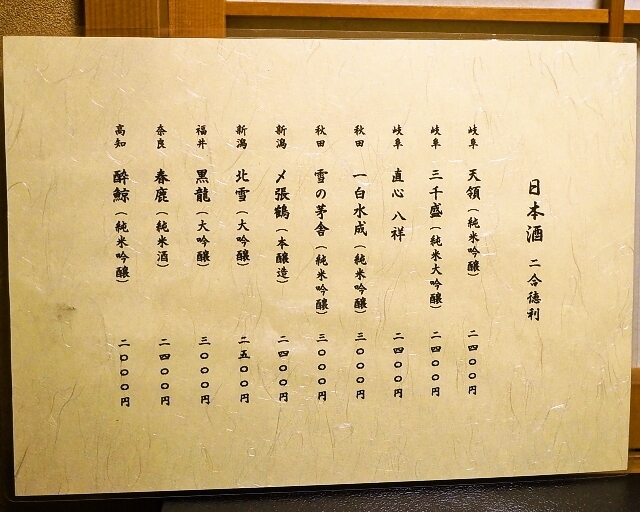 日本酒 二合徳利
岐阜 天領（純米吟醸） 二四〇〇円
岐阜 三千盛（純米大吟醸） 二四〇〇円
岐阜 直心 八祥 二四〇〇円
秋田 一白水成（純米吟醸） 三〇〇〇円
秋田 雪の茅舎（純米吟醸） 三〇〇〇円
新潟 〆張鶴（本醸造） 二四〇〇円
新潟 北雪（大吟醸） 二五〇〇円
福井 黒龍（大吟醸） 三〇〇〇円
奈良 春鹿（純米酒） 二四〇〇円
高知 酔鯨（純米吟醸） 二〇〇〇円